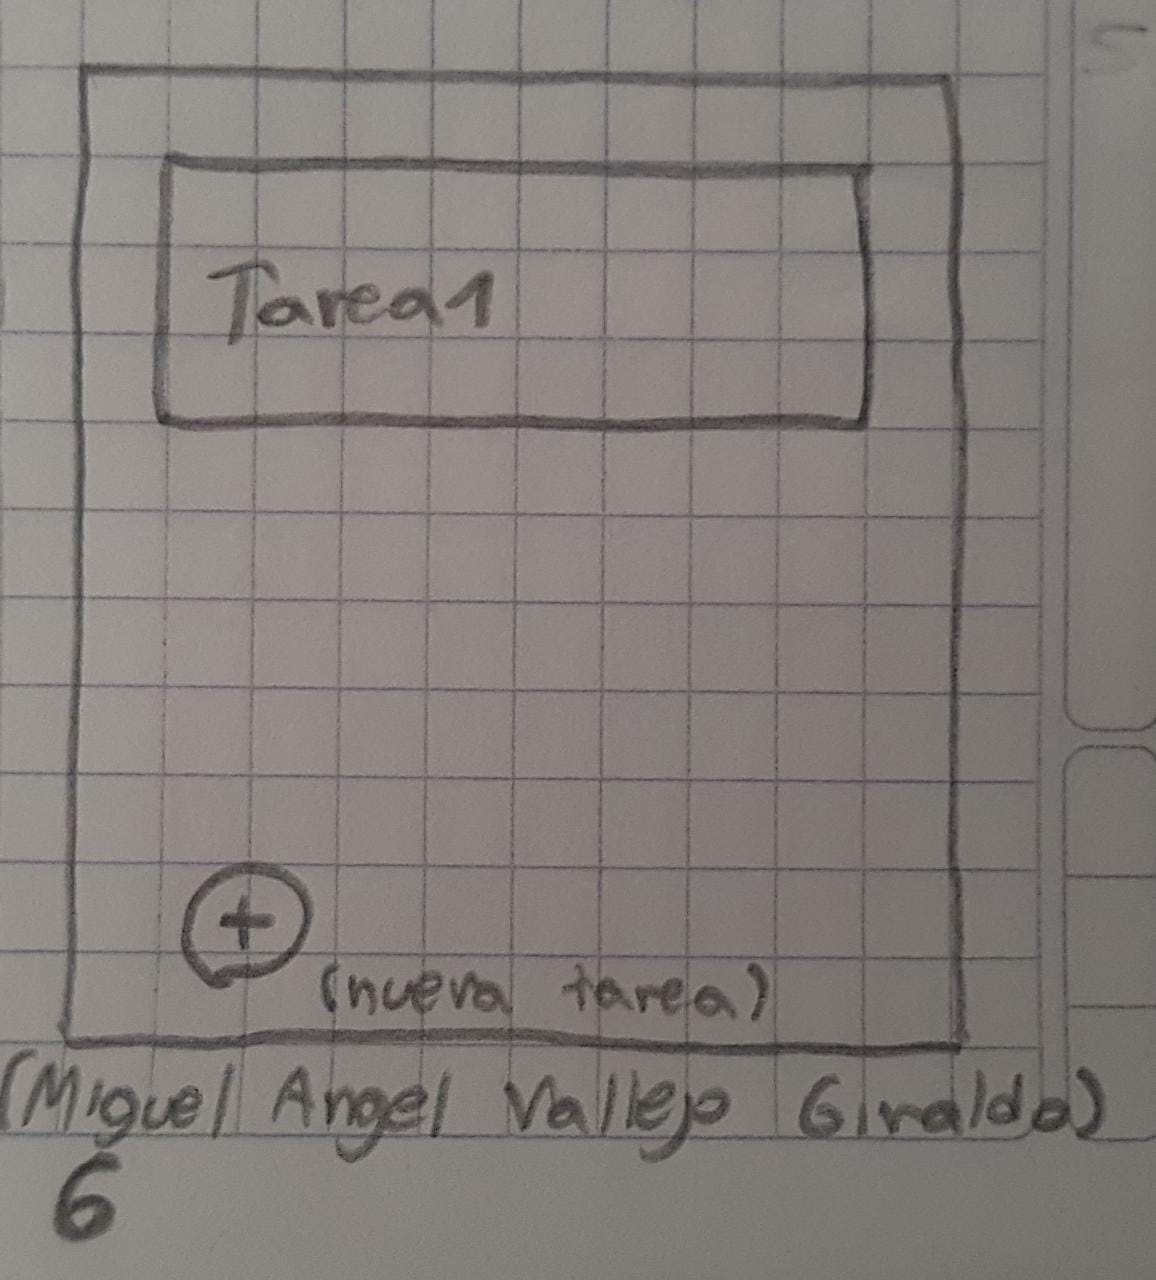 Tarea1
+
(nueva tarea)
(Miguel Angel Vallejo Giraldo)
6